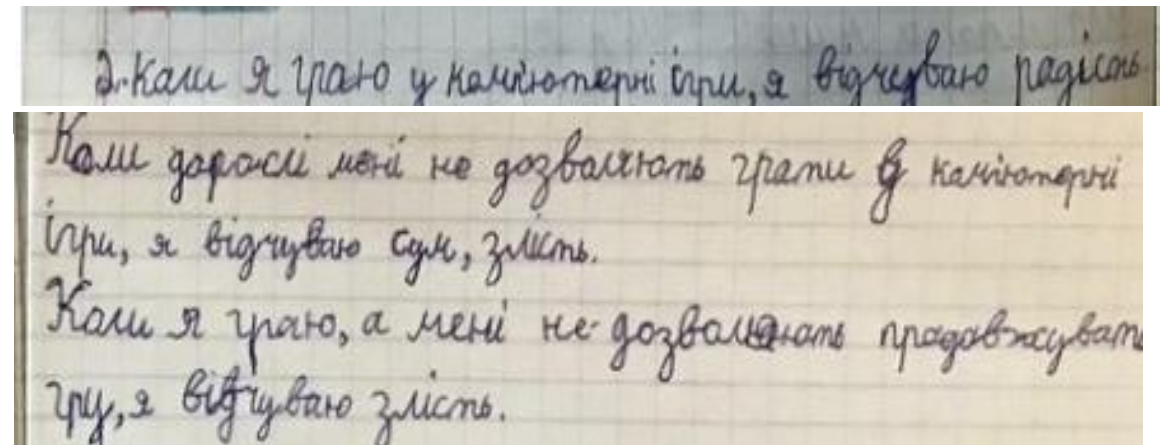 2. Коли я граю у комп'ютерні ігри, я відчуваю радість.
Коли дорослі мені не дозволяють грати в комп'ютерні
ігри, я відчуваю сум, злість.
Коли я граю, а мені не дозволяють продовжувати
гру, я відчуваю злість.